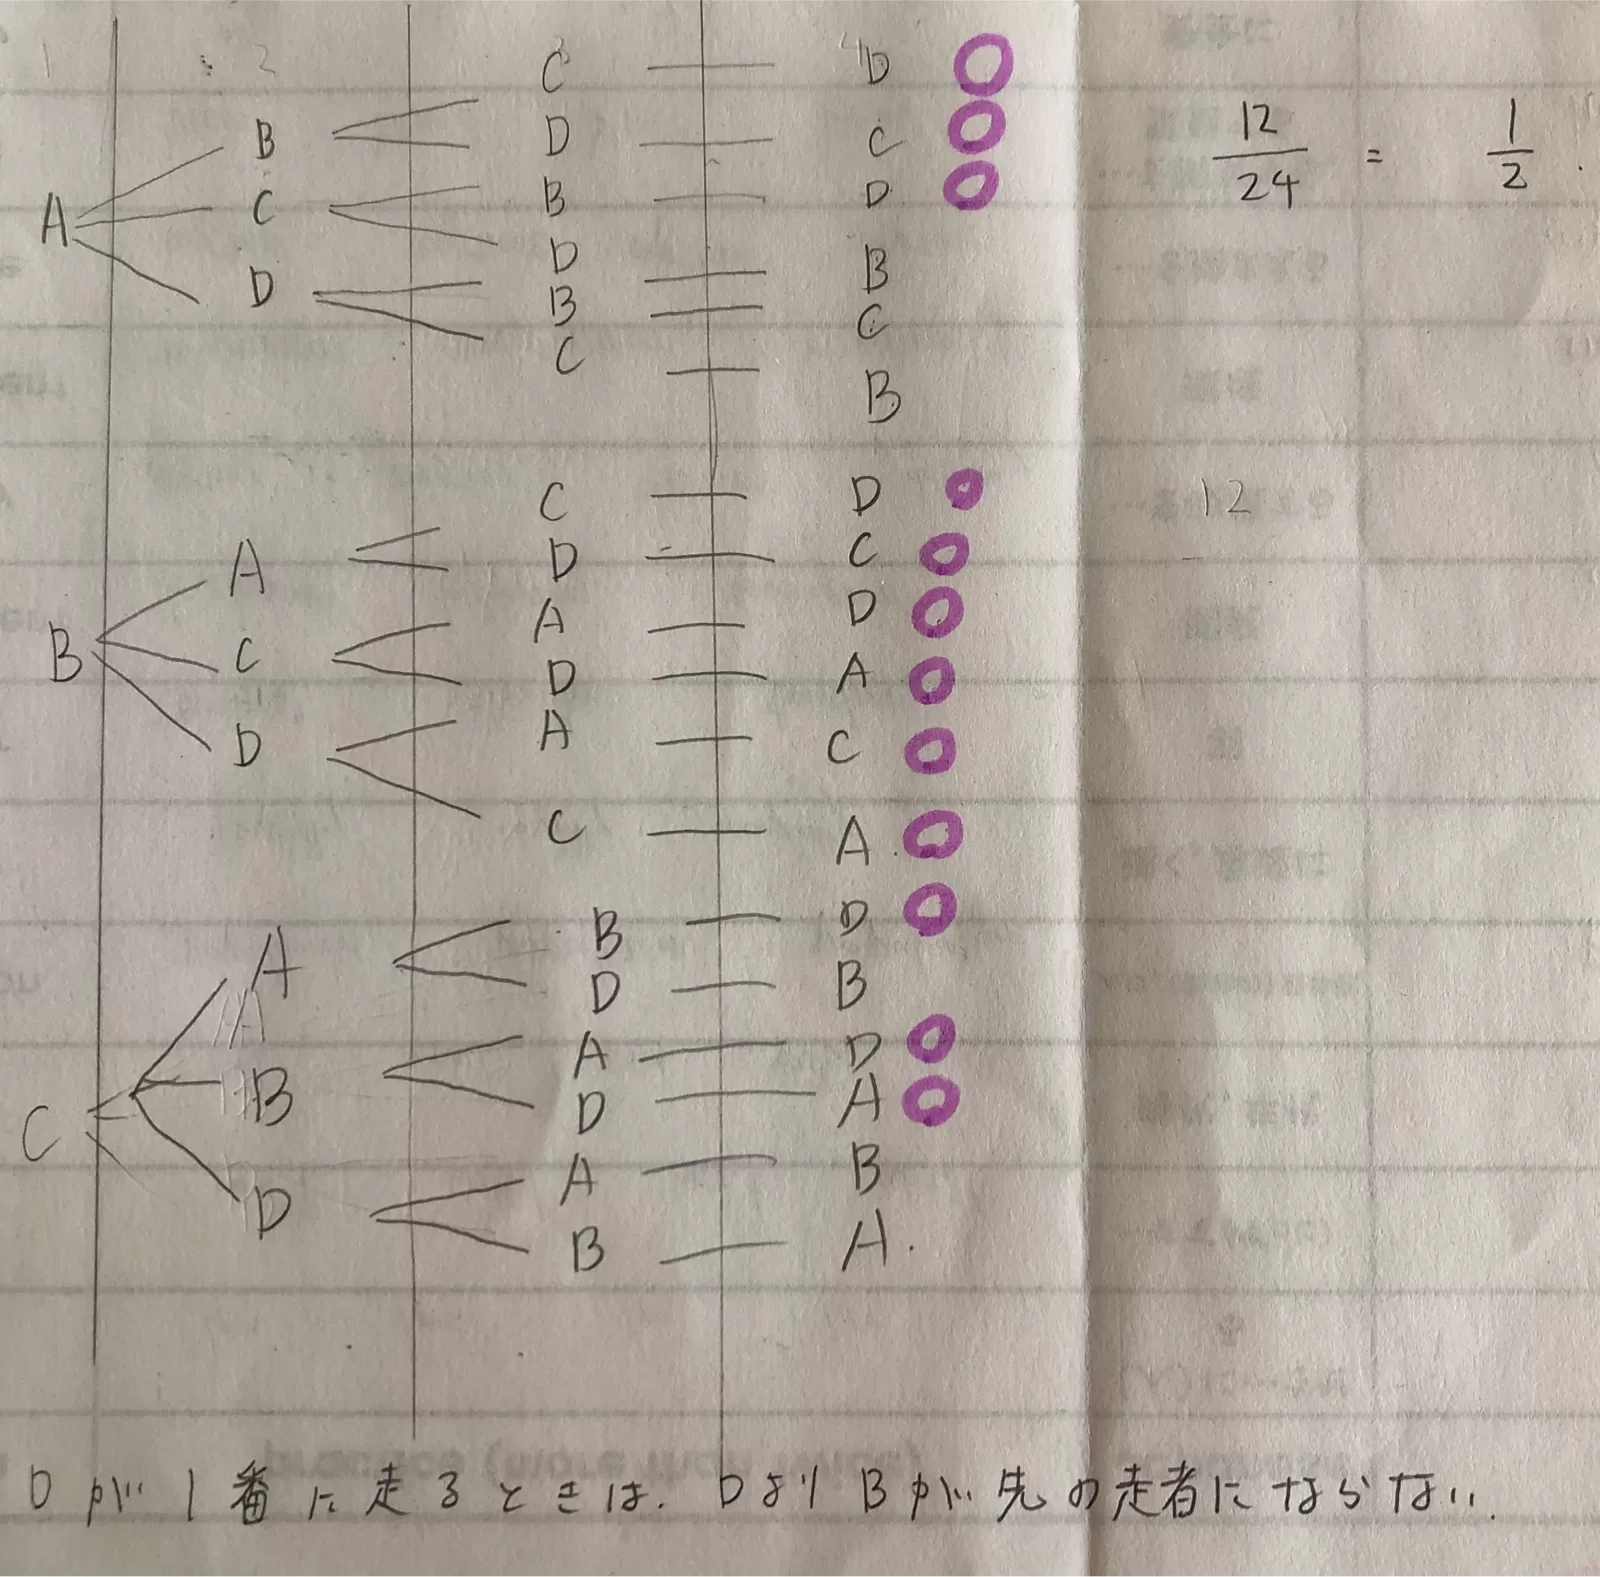 1 2 3 4
C D
B D C 12/24 = 1/2 .
A C B D
D B
D B C
C B
C D 12
A D C
A D
B C D A
D A C
C A
A B D
D B
B A D
D A
C A B
D B A .
Dが1番に走るときは. DよりBが先の走者にならない.